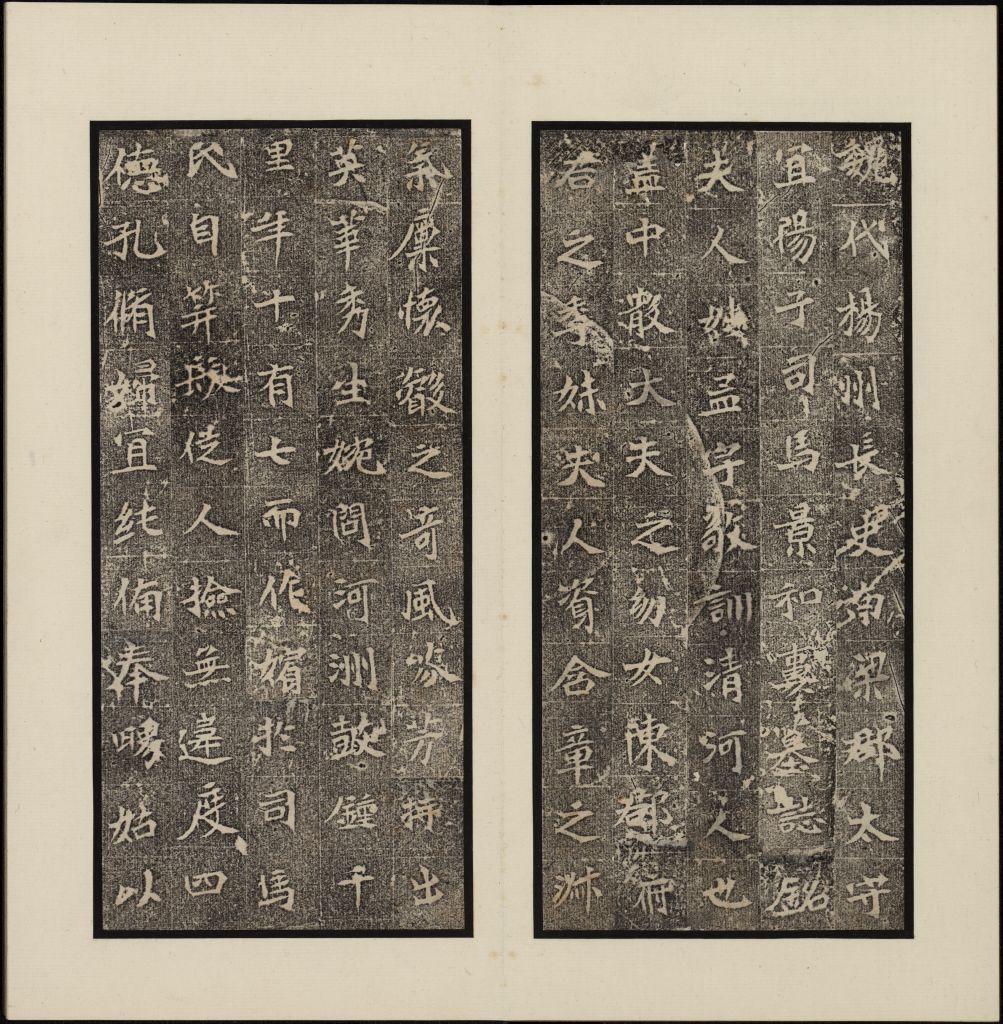 魏代揚州長史南梁郡太守
宜陽子司馬景和妻墓誌銘
夫人姓孟字敬訓清河人也
盖中散大夫之幼女陳郡府
君之季妹夫人資含章之淑
氣稟懷叡之奇風芳特出
英華秀生婉問河洲鼓鍾千
里年十有七而作嬪於司馬
氏自笄從人撿無違度四
德孔脩婦宜純備奉舅姑以